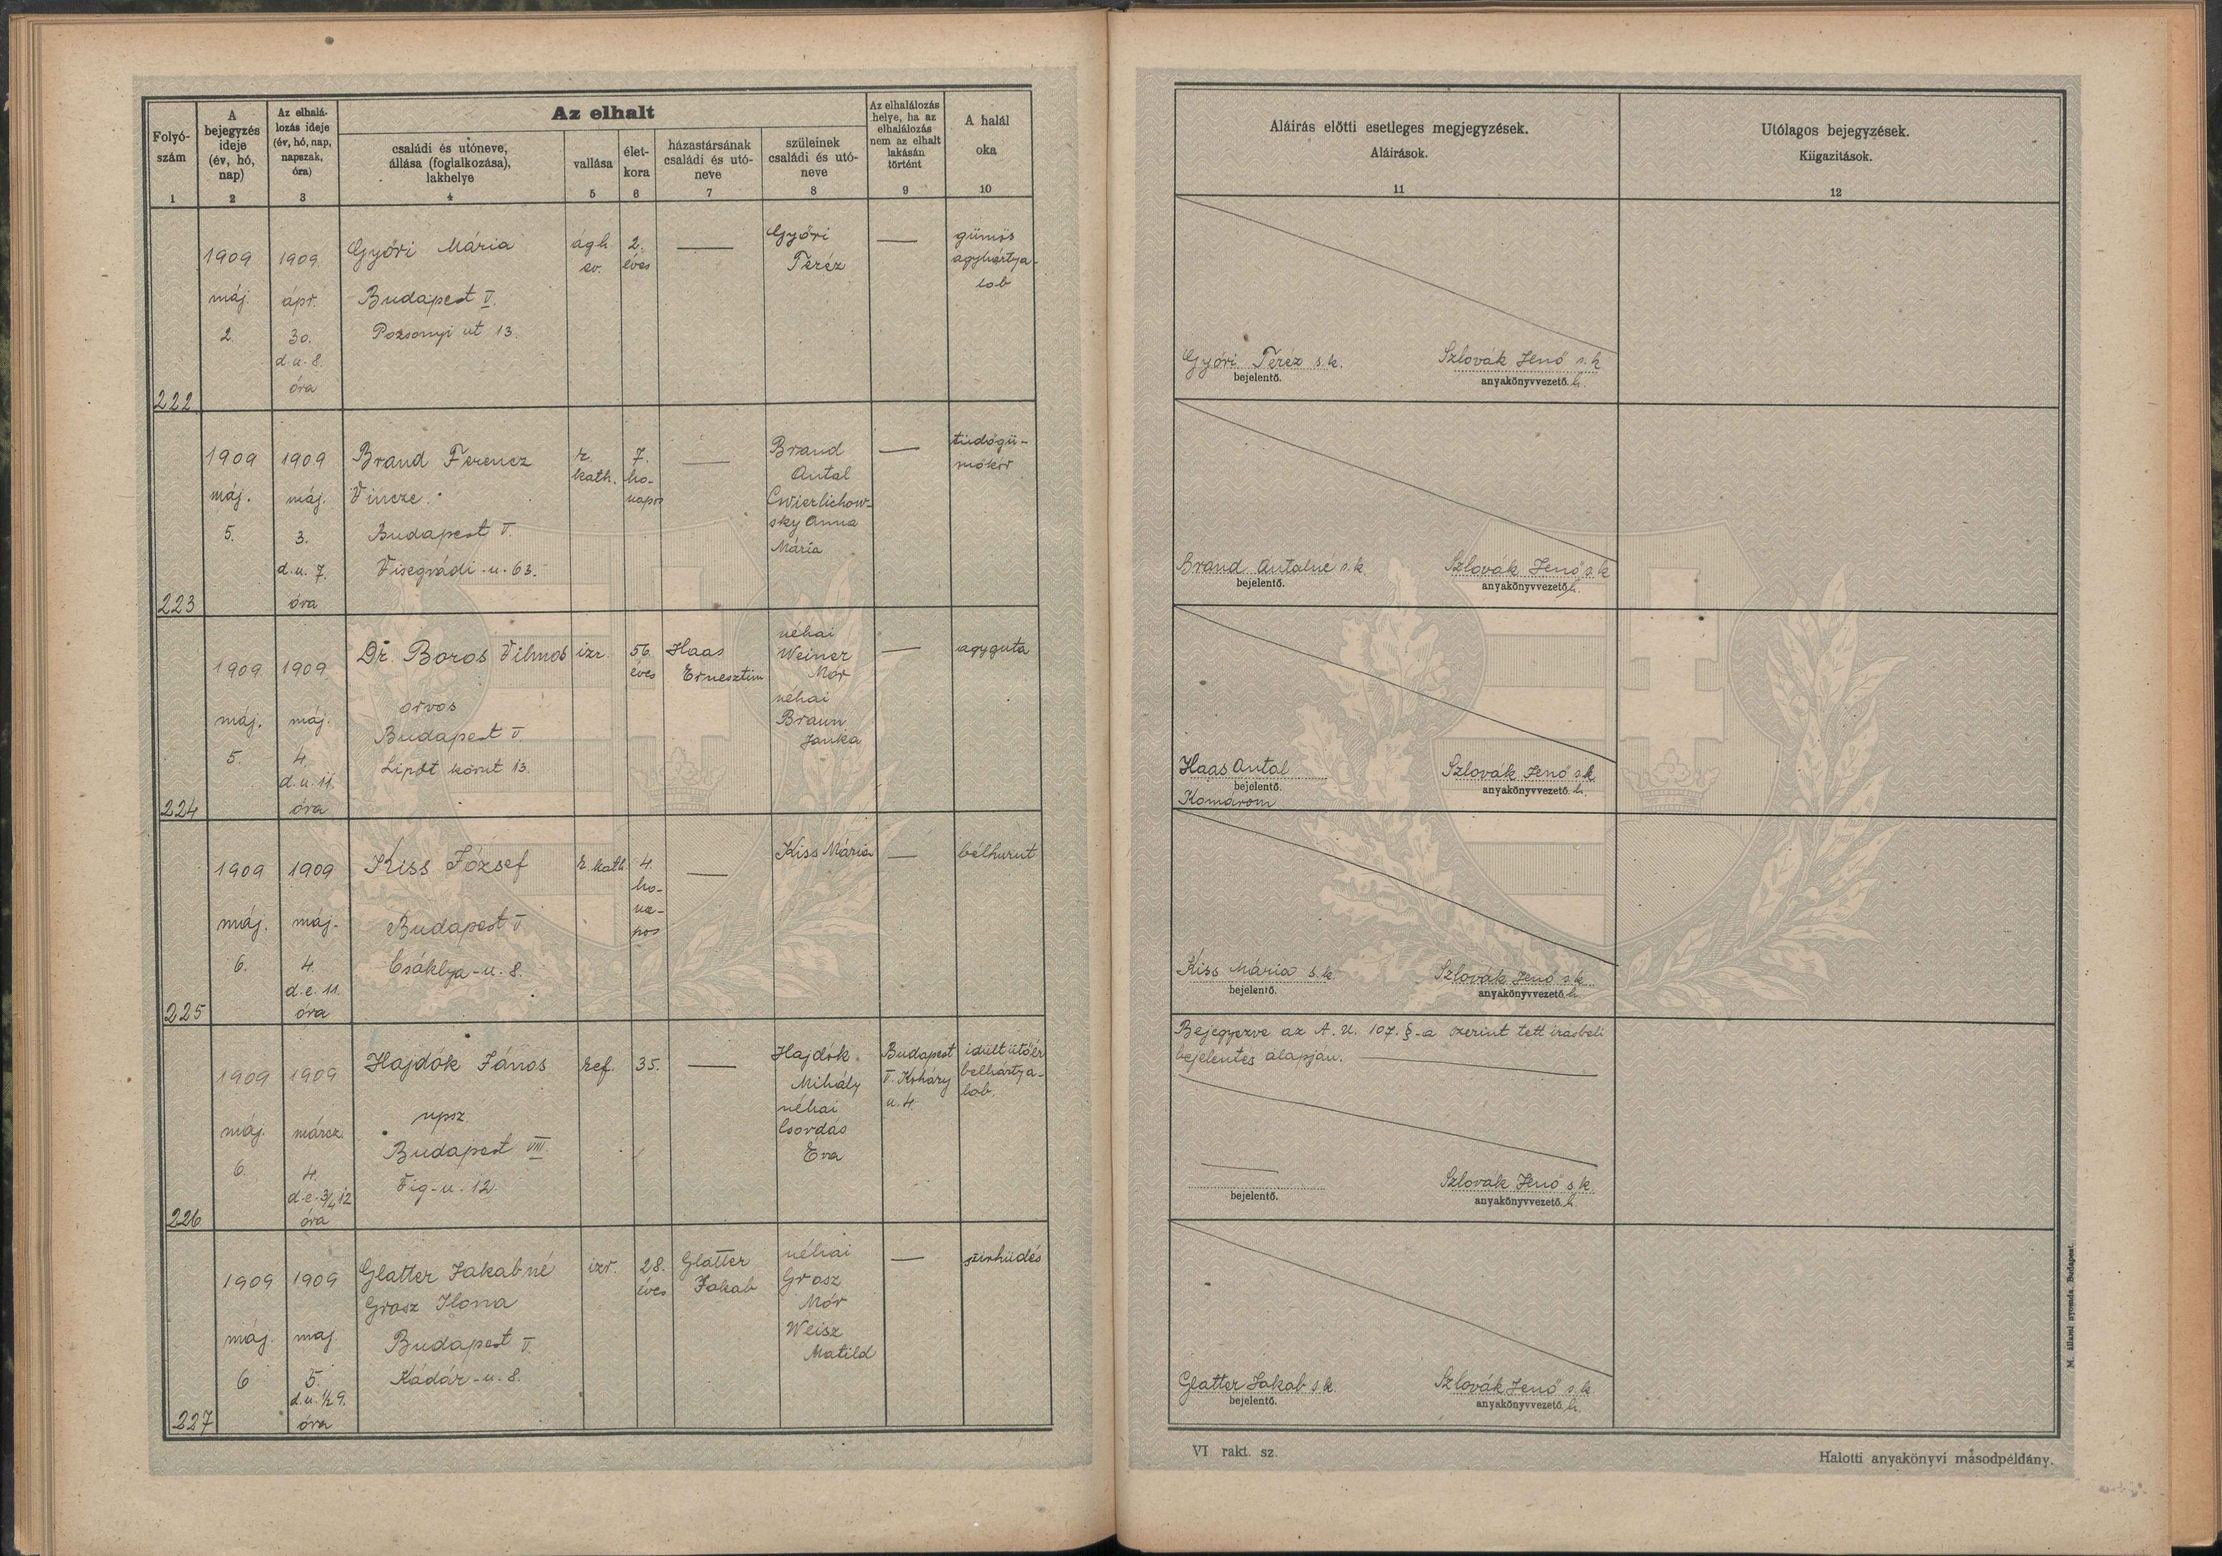 Folyó-
szám
1
A
bejegyzés
ideje
(év, hó,
nap)
2
Az elhalá-
lozás ideje
(év, hó, nap,
napszak,
óra)
3
Az elhalt
családi és utóneve,
állása (foglalkozása),
lakhelye
4
vallása
5
élet-
kora
6
házastársának
családi és utó-
neve
7
szüleinek
családi és utó-
neve
8
Az elhalálozás
helye, ha az
elhalálozás
nem az elhalt
lakásán
történt
9
A halál
oka
10
Aláírás előtti esetleges megjegyzések.
Aláírások.
11
Utólagos bejegyzések.
Kiigazitások.
12
222
1909
máj.
2.
1909
ápr.
30.
d.u. 8.
óra
Győri Mária
Budapest V.
Pozsonyi ut 13.
ágh.
ev.
2.
éves
Győri
Teréz
gümös
agyhártya-
lob
Győri Teréz s.k.
bejelentő.
Szlovák Jenő s.k.
anyakönyvvezető h.
223
1909
máj.
5.
1909
máj.
3.
d.u. 7.
óra
Brand Ferencz
Vincze.
Budapest V.
Visegrádi-u. 63.
r.
kath.
7.
ho-
napos
Brand
Antal
Cwierlichow-
sky Anna
Mária
tüdőgü-
mőkór
Brand Antalné s.k.
bejelentő.
Szlovák Jenő s.k.
anyakönyvvezető h.
224
1909
máj.
5.
1909
máj.
4.
d.u. 11.
óra
Dr. Boros Vilmos
orvos
Budapest V.
Lipót körut 13.
izr.
56.
éves
Haas
Ernesztin
néhai
Weiner
Mór
néhai
Braun
Janka
agyguta
Haas Antal
bejelentő.
Komárom
Szlovák Jenő s.k.
anyakönyvvezető h.
225
1909
máj.
6.
1909
máj.
4.
d.e. 11.
óra
Kiss József
Budapest V
Csáklya-u. 8.
r. kath.
4.
ho-
na-
pos
Kiss Mária
bélhurut
Kiss Mária s.k.
bejelentő.
Szlovák Jenő s.k.
anyakönyvvezető h.
226
1909
máj.
6.
1909
márcz.
4.
d.e. 3/4 12
óra
Hajdók János
npsz.
Budapest VIII.
Vig-u. 12.
ref.
35.
Hajdók
Mihály
néhai
Csordás
Eva
Budapest
V. Koháry
u. 4.
idült ütőér
belhártya-
lob.
Bejegyezve az A. U. 107. §-a szerint tett irásbeli
bejelentés alapján.
bejelentő.
Szlovák Jenő s.k.
anyakönyvvezető h.
227
1909
máj.
6
1909
maj.
5.
d.u. 1/2 9.
óra
Glatter Jakabné
Grosz Ilona
Budapest V.
Kádár-u. 8.
izr.
28.
éves
Glatter
Jakab
néhai
Grosz
Mór
Weisz
Matild
szivhüdés
Glatter Jakab s.k.
bejelentő.
Szlovák Jenő s.k.
anyakönyvvezető h.
VI. rakt. sz.
Halotti anyakönyvi másodpéldány.
M. állami nyomda. Budapest.